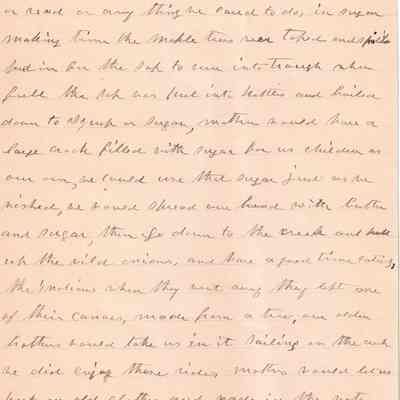 or read or any thing we cared to do, in sugar
making time the maple trees were taped and spiles
put in for the sap to run into trough when
full the sap was put into kettles and boiled
down to syrup or sugar, mother would have a
large crock filled with sugar for us children as
our own, we could use that sugar just as we
wished, we would spread our bread with butter
and sugar, then go down to the creek and
the wild onions, and have a good time eating,
the indians when they went away they left one
of their canoes, made from a tree, our older
brothers would take us in it sailing on the creek
we did enjoy those rides mother would let us
old clothes and wade in the water